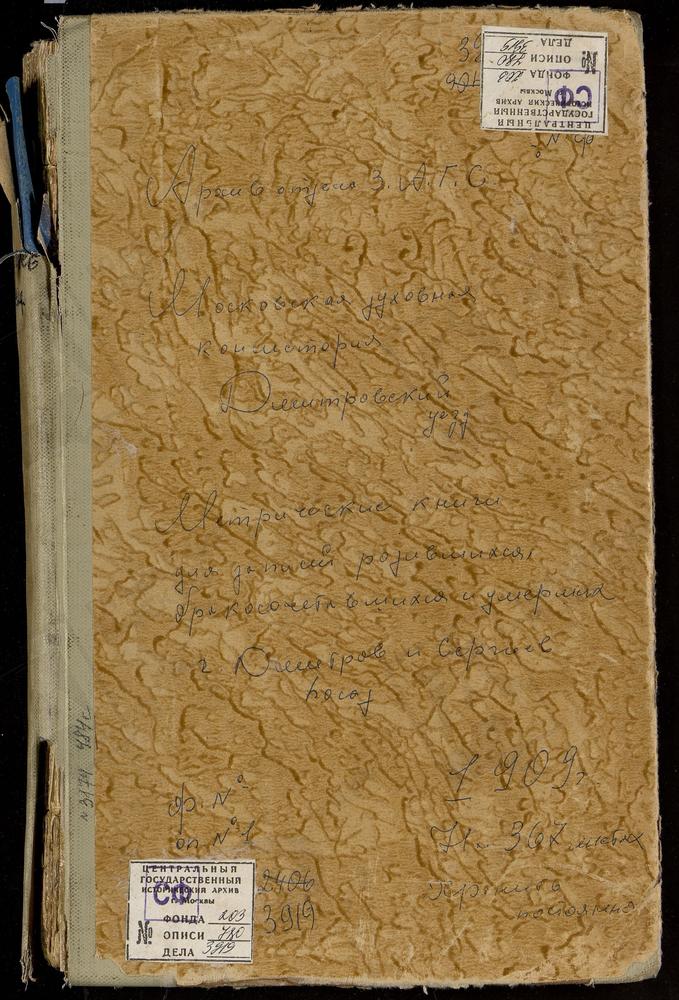 ЦЕНТРАЛЬНЫЙ
ГОСУДАРСТВЕННЫЙ
ИСТОРИЧЕСКИЙ АРХИВ
Москвы
СФ
ФОНДА 203
№ ОПИСИ 780
ДЕЛА 3919
Архив отдела З.А.Г.С.
Московская духовная
консистория
Дмитровский
уезд
Метрические книги
для записи родившихся,
бракосочетавшихся и умерших
г. Дмитров и Сергиев
Посад
1909 г.
ф. №
оп. № 1
на 367 листах
Хранить
постоянно
2406
3919
ЦЕНТРАЛЬНЫЙ
ГОСУДАРСТВЕННЫЙ
ИСТОРИЧЕСКИЙ АРХИВ
г. Москвы
СФ
ФОНДА 203
№ ОПИСИ 780
ДЕЛА 3919